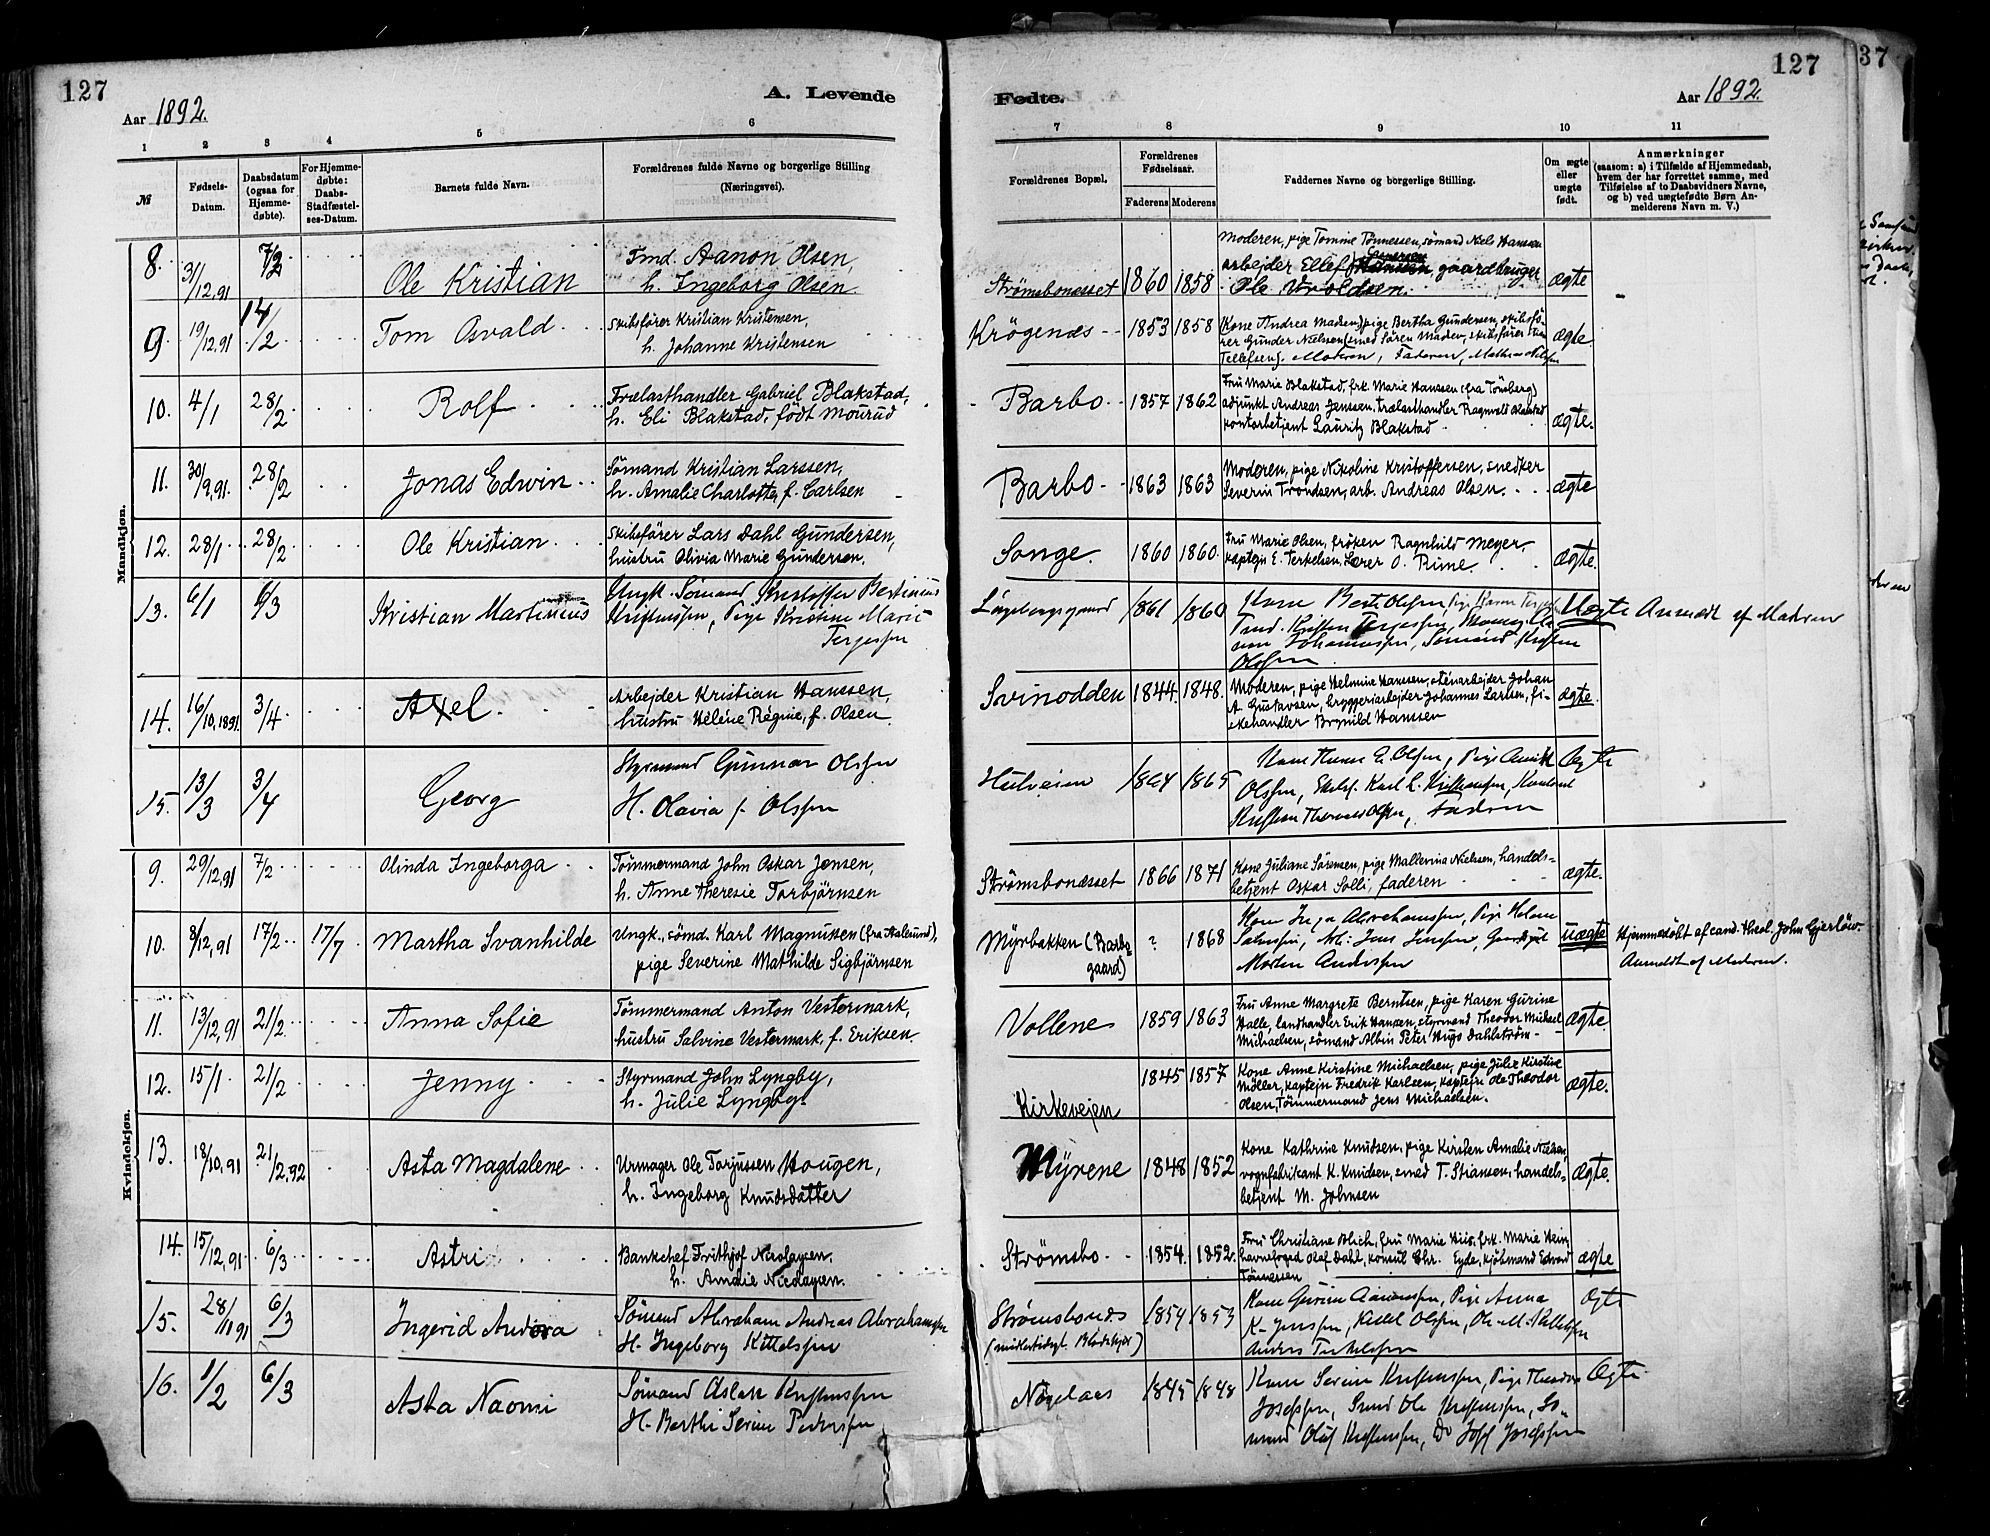 127
A. Levende
Aar 1892.
1 2 3 4 5 6
№ Fødsels-Datum. Daabsdatum (ogsaa for Hjemmedøbte). For Hjemmedøbte: Daabs-Stadfæstelses-Datum. Barnets fulde Navn. Forældrenes fulde Navne og borgerlige Stilling (Næringsvei).
Mandkjøn.
8. 31/12,91 7/2 Ole Kristian Tmd. Aanon Olsen,
h. Ingeborg Olsen
9 19/12,91 14/2 Tom Osvald Skibsfører Kristian Kristensen,
h. Johanne Kristensen
10. 4/1 28/2 Rolf Trælasthandler Gabriel Blakstad,
h. Eli Blakstad, født Mourud
11. 30/9,91. 28/2 Jonas Edwin Sömand Kristian Larssen,
h. Amalie Charlotte, f. Carlsen
12. 28/1 28/2 Ole Kristian Skibsfører Lars Dahl Gundersen,
hustru Olivia Marie Gundersen.
13. 6/1 6/3 Kristian Martinius Ungk. Sømand Kristoffer Bertinius
Kristenssen, Pige Kristine Marie
Terjessen
14. 16/10,1891. 3/4 Axel Arbejder Kristian Hanssen,
hustru Helene Regine, f. Olsen
15. 13/3 3/4 Georg Styrmand Gunnar Olssen
H. Olavia f. Olssen
Kvindekjøn.
9. 29/12,91 7/2 Olinda Ingeborga Tømmermand John Oskar Jensen,
h. Anne Theresie Torbjörnsen
10. 8/12,91 17/2 17/7 Martha Svanhilde Ungk., sömd. Karl Magnussen (fra Aalesund),
pige Severine Mathilde Sigbjörnsen
11. 13/12,91 21/2 Anna Sofie Tømmermand Anton Vestermark,
hustru Salvine Vestermark, f. Eriksen.
12. 15/1 21/2 Jenny Styrmand John Lyngby,
h. Julie Lyngby.
13. 18/10,91 21/2,92 Asta Magdalene Urmager Ole Torjussen Hougen,
h. Ingeborg Knudsdatter
14. 15/12,91 6/3 Astri Bankchef Frithjof Nicolaysen,
h. Amalie Nicolaysen.
15. 28/11 91 6/3 Ingerid Andora Sömand Abraham Andreas Abrahamsen
H. Ingeborg Kittelssen
16. 1/2 6/3 Asta Naomi Sömand Aslak Kristenssen
H. Berthe Serine Pederssen
127
Fødte.
Aar 1892.
7 8 9 10 11
Forældrenes Bopæl. Forældrenes Fødselsaar. Faderens Moderens Faddernes Navne og borgerlige Stilling. Om ægte eller uægte født. Anmærkninger (saasom: a) i Tilfælde af Hjemmedaab, hvem der har forrettet samme, med Tilføielse af to Daabsvidners Navne, og b) ved uægtefødte Børn Anmelderens Navn m. V.)
Strömsbonæsset 1860 1858 Moderen, pige Tomine Tönnessen, sömand Niels Hanssen
arbejder Ellef gaardbruger
Ole Voldsen. ægte
Krögenæs 1853 1858 (Kone Andrea Madsen) pige Bertha Gundersen, skibsfö-
rer Gunder Nielsen, smed Sören Madsen, skibsfører
Tellefsen). Moderen, Faderen, Mathias Nilssen ægte
Barbo 1857 1862 Fru Marie Blakstad, frk. Marie Hanssen (fra Tönsberg)
adjunkt Andreas Jenssen, trælasthandler Ragnvald Blakstad
kontorbetjent Lauritz Blakstad ægte.
Barbo 1863 1863 Moderen, pige Nikoline Kristoffersen, snedker
Severin Trondsen, arb. Andreas Olsen. ægte
Songe. 1860 1860. Fru Marie Olsen, fröken Ragnhild Meyer,
kaptejn E. Terkelsen, Lærer O. Rime. ægte.
Langebergsgaard 1861 1860 Kone Berte Olssen, Pige Karen
Tmd. Kristen Terjessen,
Johannessen, Sømand Kristen
Olssen Uægte Anmeldt af Moderen
Svinodden 1844. 1848. Moderen, pige Helmine Hanssen, stenarbejder Johan
A. Gustavsen, bryggeriarbejder Johannes Larsen, fi-
skehandler Brynild Hanssen ægte.
Hulveien 1864 1865 Kone Olssen, Pige
Olssen, Karl L. Kristenssen,
Kristian Olssen, Faderen Ægte
Strömsbonæsset 1866 1871 Kone Juliane Sörensen, pige Mallerina Nielsen, handels-
betjent Oskar Solli, faderen ægte.
Myrbakken (Barbo
gaard) ? 1868 Kone Inga Abrahamssen, Pige Helene
Arb. Jens Jenssen,
Morten Anderssen uægte Hjemmedöbt af cand. theol. John Gjerlöw.
Anmeldt af Moderen.
Vollene 1859 1863 Fru Anne Margrete Berntsen, pige Karen Gurine
Halle, landhandler Erik Hansen, styrmand Theodor Michael
Michaelsen, sömand Albin Peter Hugo Dahlström ægte
Kirkeveien 1845 1857 Kone Anne Kirstine Michaelsen, pige Julie Kirstine
Möller, kaptejn Fredrik Karlsen, kaptejn Ole Theodor
Olsen, Tömmermand Jens Michaelsen. ægte.
Myrene 1848 1852 Kone Kathrine Knudsen, pige Kirsten Amalie Nielsen,
vognfabrikant K. Knudsen, smed T. Stiansen, handels-
betjent M. Johnsen ægte.
Strömsbo 1854. 1852. Fru Christiane Blich, fru Marie Hiis, frk. Marie Hein,
havnefoged Olaf Dahl, konsul Chr. Eyde, kjöbmand Edvard
Tönnessen ægte
Strömsbonæs
(midlertidigt ) 1854 1853 Kone Gurine Aanonssen, Pige Anna
K. Jenssen, Kittel Olssen, Ole M.
Anders Terkelssen Ægte
Nöglaas 1845 1848 Kone Serine Kristenssen, Pige Theodora
Josefssen, Smed Ole Kristenssen, Sö-
mand Oluf Kristenssen, Do Josef Josefssen Ægte.
37